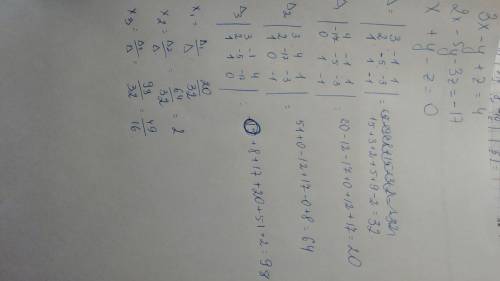 3x - y + z = 4
2x - 5y - 3z = -17
x + y - z = 0
Δ = | 3 -1 1 |
| 2 -5 -3 | =
| 1 1 -1 |
15+3+2+5+9-2=32
Δ₁ | 4 -1 1 |
| -17 -5 -3 | = 20-12-17+0+12+17=20
| 0 1 -1 |
Δ₂ | 3 4 1 |
| 2 -17 -3 | = 51+0-12+17-0+8=64
| 1 0 -1 |
Δ₃ | 3 -1 4 |
| 2 -5 -17 |
| 1 -0 |
+8+17+20+51+2=98
x₁ = Δ₁/Δ = 20/32
x₂ = Δ₂/Δ = 64/32 = 2
x₃ = Δ₃/Δ = 98/32 = 49/16